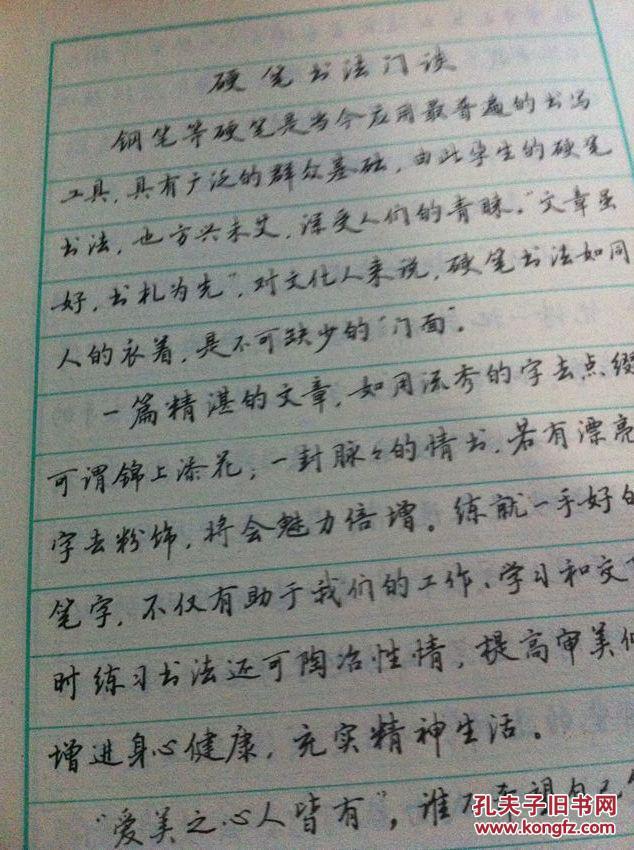 硬笔书法门谈
钢笔等硬笔是当今应用最普遍的书写
工具,具有广泛的群众基础,由此孕生的硬笔
书法,也方兴未艾,深受人们的青睐。“文章虽
好,书札为先”,对文化人来说,硬笔书法如同
人的衣着,是不可缺少的“门面”。
一篇精湛的文章,如用流秀的字去点缀
可谓锦上添花;一封脉々的情书,若有漂亮
字去粉饰,将会魅力倍增。练就一手好的
笔字,不仅有助于我们的工作、学习和交
时练习书法还可陶冶性情,提高审美
增进身心健康,充实精神生活。
“爱美之心人皆有”,谁不希望自己
孔夫子旧书网
www.kongfz.com